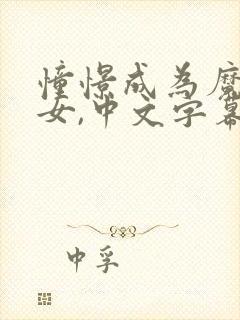 憧憬成為魔
女,中文字幕
中孚